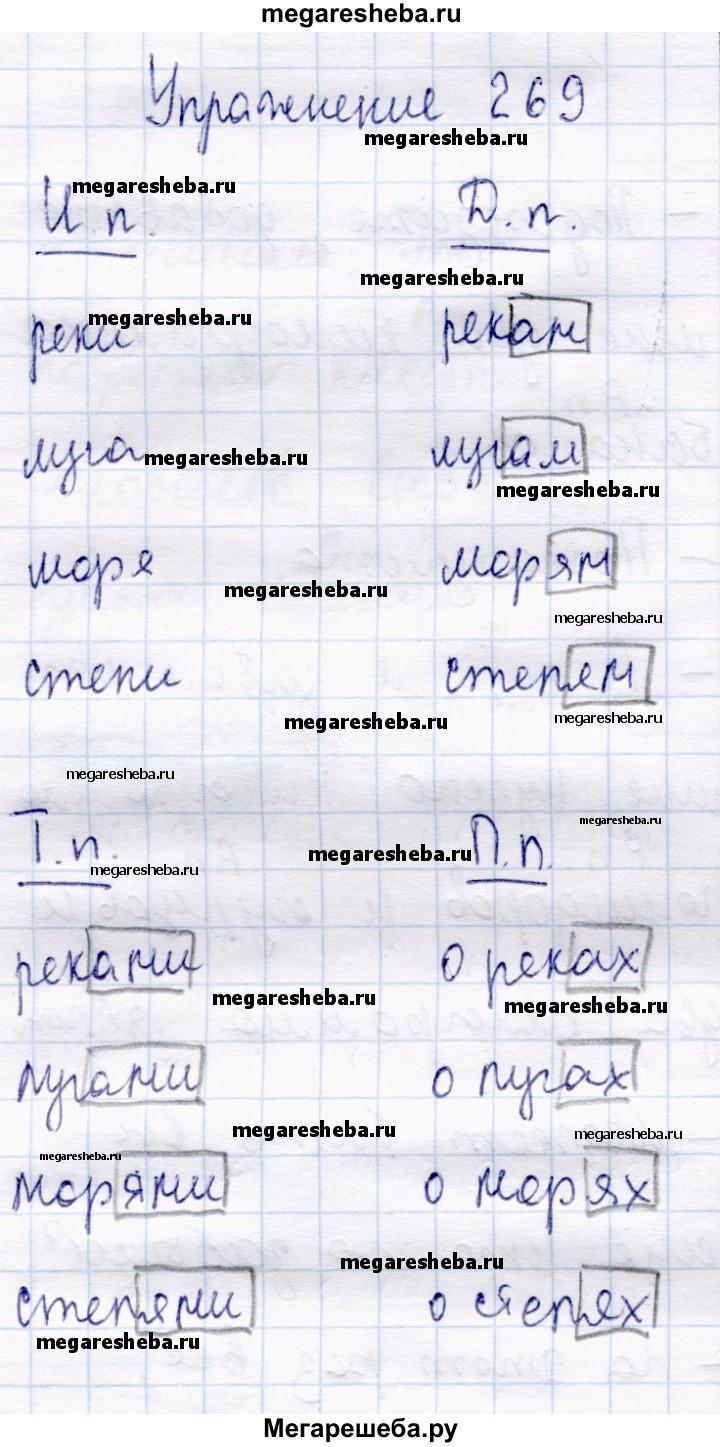 megaresheba.ru
Упражнение 269
megaresheba.ru
megaresheba.ru
И.п. Д.п.
megaresheba.ru
megaresheba.ru
реки рекам
луга лугам
megaresheba.ru
megaresheba.ru
моря морям
megaresheba.ru
megaresheba.ru
степи степям
megaresheba.ru
megaresheba.ru
megaresheba.ru
megaresheba.ru
Т.п. П.п.
megaresheba.ru
megaresheba.ru
реками о реках
megaresheba.ru
megaresheba.ru
лугами о лугах
megaresheba.ru
megaresheba.ru
megaresheba.ru
морями о морях
megaresheba.ru
степями о степях
megaresheba.ru
Мегарешеба.ру